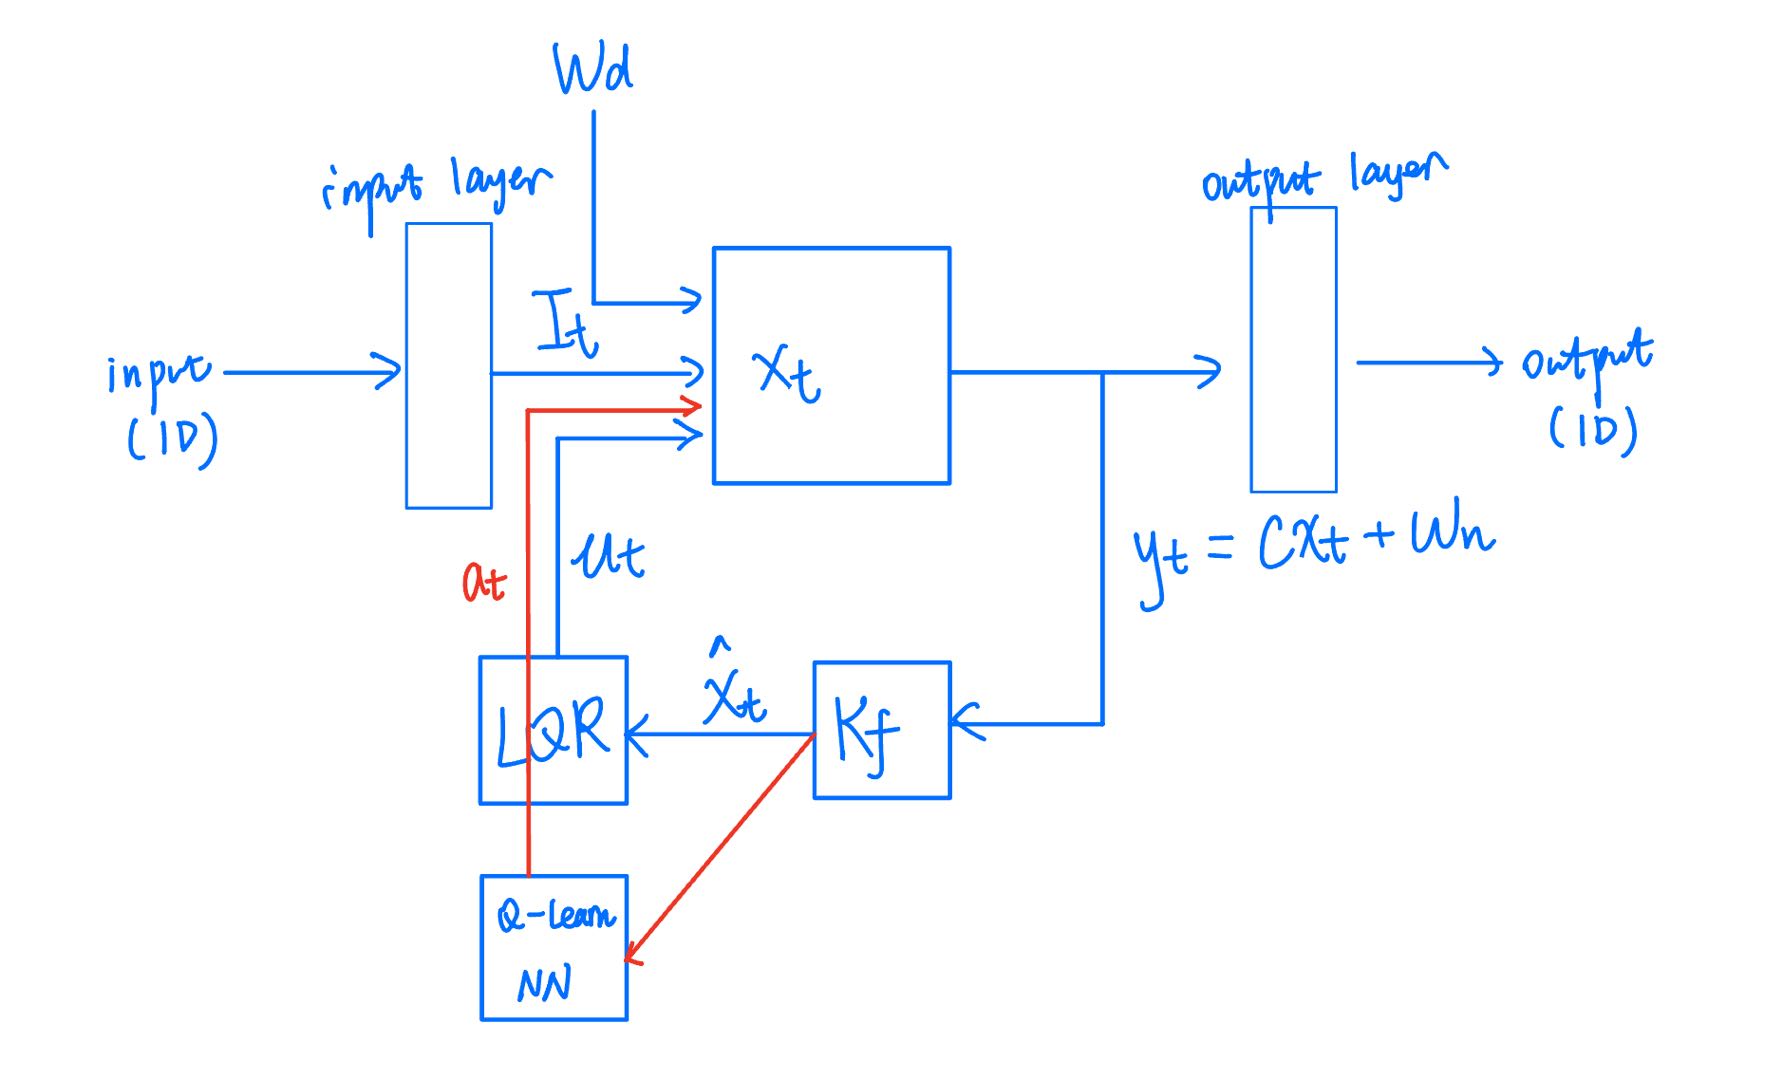 Wd
input layer
output layer
It
input
(1D)
xt
output
(1D)
at
ut
yt = Cxt + Wn
x̂t
LQR
Kf
Q-learn
NN